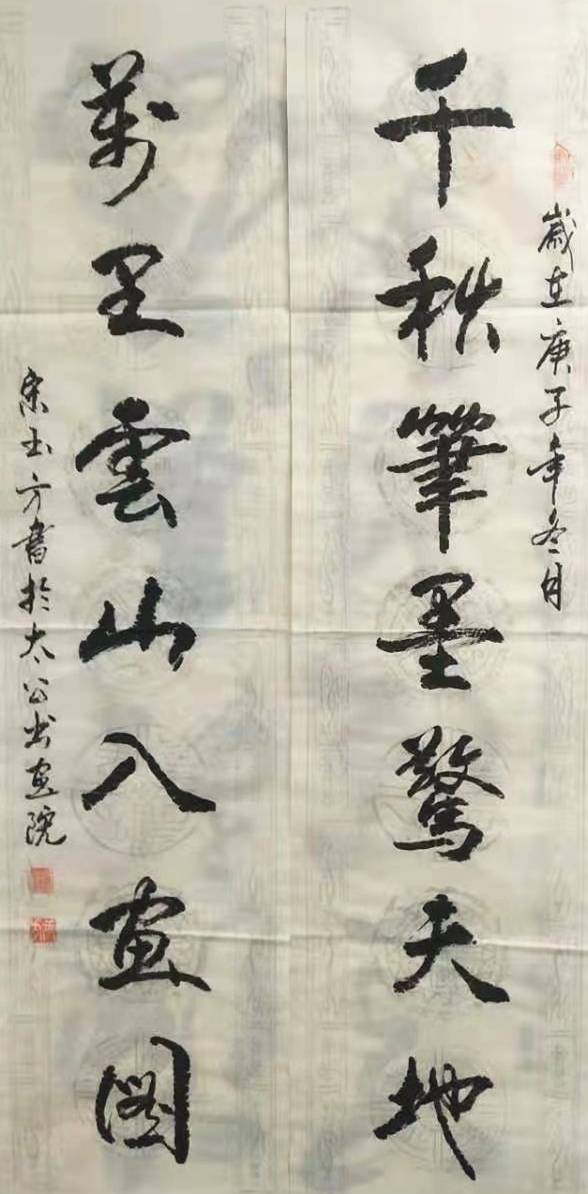 歲在庚子年冬月
千秋筆墨驚天地
萬里雲山入畫圖
宋玉方書於太公书畫院